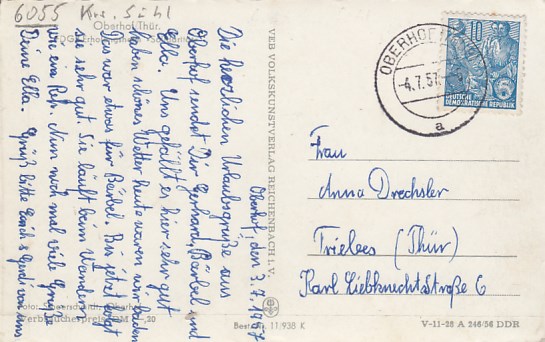 6055 Krs. Suhl
Oberhof/Thür.
Oberhof, den 3.7.1957
Die herzlichen Urlaubsgrüße aus
Oberhof sendet Dir Gerhard, Bärbel und
Ella. Uns gefällt es hier sehr gut
haben schönes Wetter heute waren wir baden
Das war etwas für Bärbel. Bis jetzt folgt
sie sehr gut. Sie läuft beim Wandern
wie ein Reh. Nun noch mal viele Grüße
Deine Ella. Grüß bitte Erich & Gerdi von uns
Verbraucherpreis DM -,20
VEB VOLKSKUNSTVERLAG REICHENBACH i. V.
Best.-Nr. 11/938 K
OBERHOF
-4.7.57
a
10
DEUTSCHE
DEMOKRATISCHE REPUBLIK
Frau
Anna Drechsler
Triebes (Thür)
Karl Liebknechtstraße 6
V-11-28 A 246/56 DDR